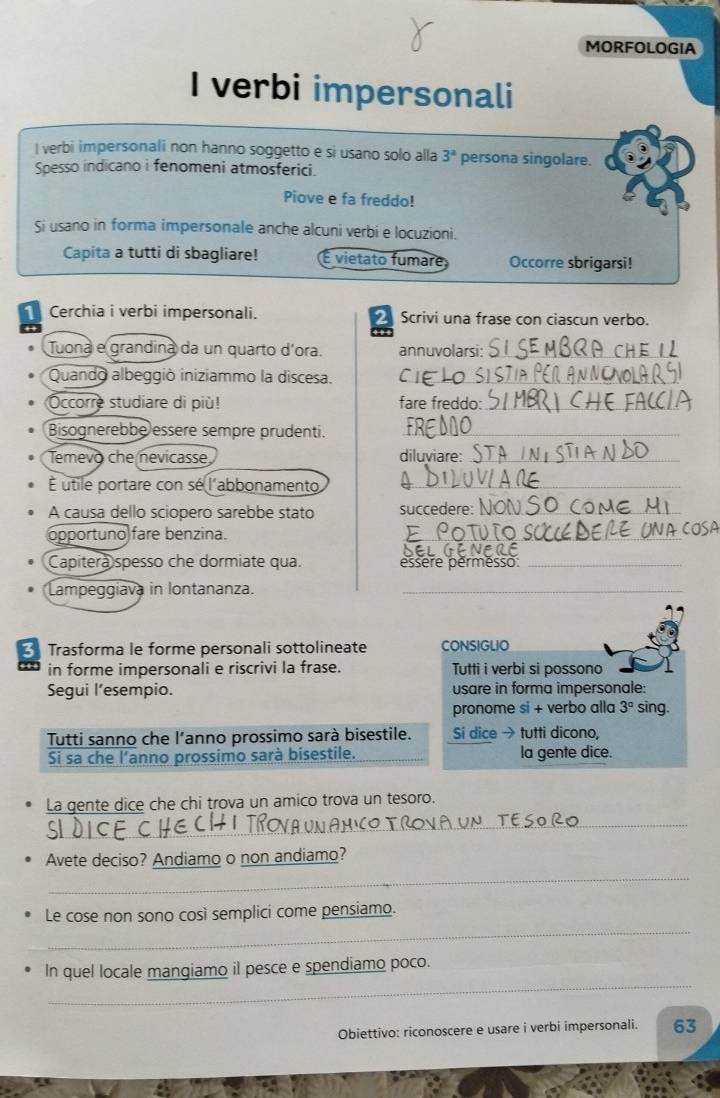 MORFOLOGIA
I verbi impersonali
I verbi impersonali non hanno soggetto e si usano solo alla 3ª persona singolare.
Spesso indicano i fenomeni atmosferici.
Piove e fa freddo!
Si usano in forma impersonale anche alcuni verbi e locuzioni.
Capita a tutti di sbagliare! È vietato fumare. Occorre sbrigarsi!
1 Cerchia i verbi impersonali.
• Tuona e grandina da un quarto d'ora.
• Quando albeggiò iniziammo la discesa.
• Occorre studiare di più!
• Bisognerebbe essere sempre prudenti.
• Temevo che nevicasse.
• È utile portare con sé l'abbonamento.
• A causa dello sciopero sarebbe stato
opportuno fare benzina.
• Capiterà spesso che dormiate qua.
• Lampeggiava in lontananza.
2 Scrivi una frase con ciascun verbo.
annuvolarsi: SI SEMBRA CHE IL
CIELO SI STIA PER ANNUVOLARSI
fare freddo: SI MBRI CHE FACCIA
FREDDO
diluviare: STA INISTIANDO
A DILUVIARE
succedere: NON SO COME MI
E POTUTO SUCCEDERE UNA COSA
DEL GENERE
essere permesso:
3 Trasforma le forme personali sottolineate
in forme impersonali e riscrivi la frase.
Segui l'esempio.
CONSIGLIO
Tutti i verbi si possono
usare in forma impersonale:
pronome si + verbo alla 3ª sing.
Si dice → tutti dicono,
la gente dice.
Tutti sanno che l'anno prossimo sarà bisestile.
Si sa che l'anno prossimo sarà bisestile.
• La gente dice che chi trova un amico trova un tesoro.
SI DICE CHE CHI TROVA UN AMICO TROVA UN TESORO
• Avete deciso? Andiamo o non andiamo?
• Le cose non sono così semplici come pensiamo.
• In quel locale mangiamo il pesce e spendiamo poco.
Obiettivo: riconoscere e usare i verbi impersonali. 63